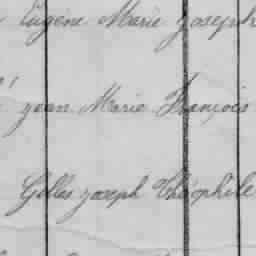 Eugène Marie Joseph
Jean Marie François
Gilles Joseph Théophile